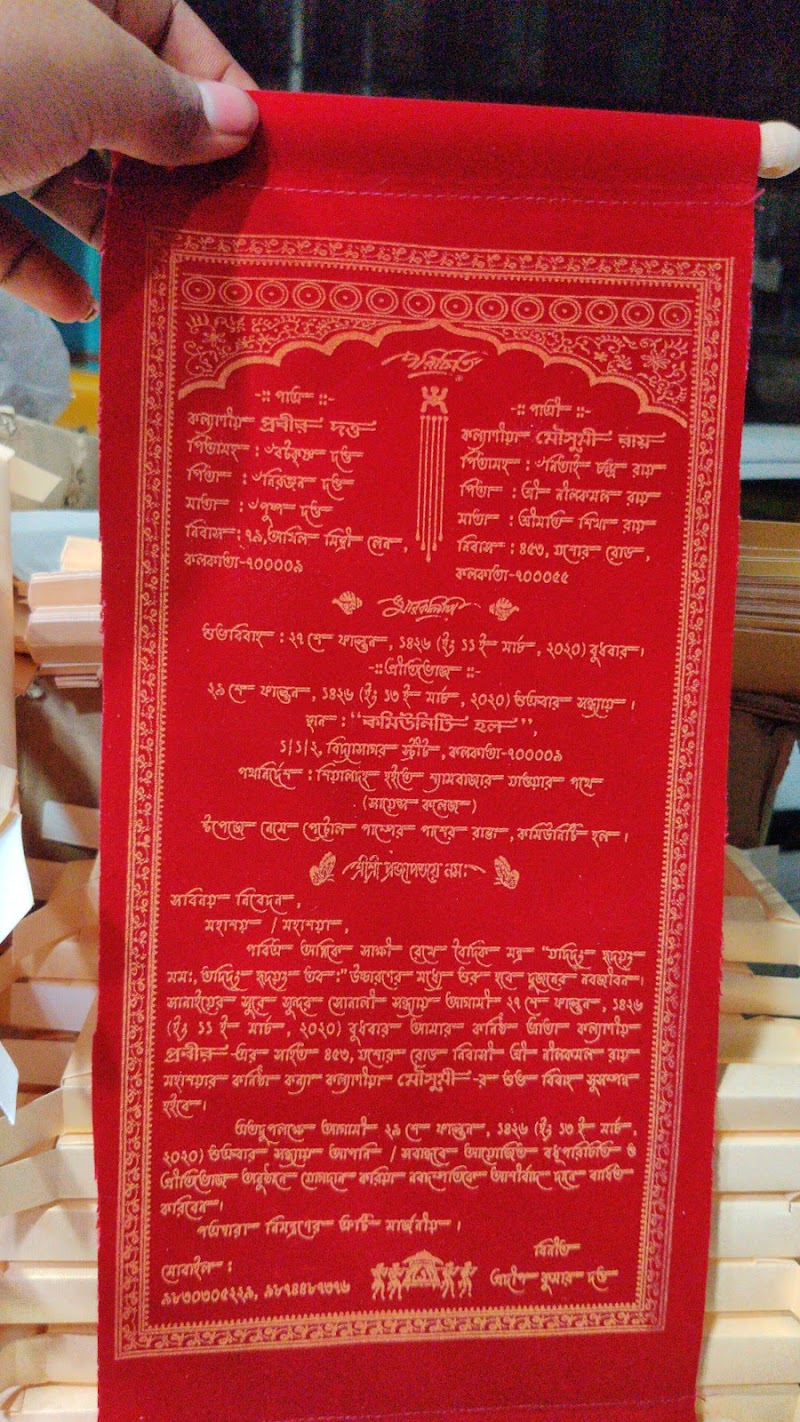 পরিচিতি
-:: পাত্র ::-
কল্যাণীয় প্রবীর দত্ত
পিতামহ : ৺বটকৃষ্ণ দত্ত
পিতা : ৺নিরঞ্জন দত্ত
মাতা : ৺পুষ্প দত্ত
নিবাস : ৭৯, অখিল মিস্ত্রী লেন,
কলকাতা-৭০০০০৯
-:: পাত্রী ::-
কল্যাণীয়া মৌসুমী রায়
পিতামহ : ৺নিতাই চন্দ্র রায়
পিতা : শ্রী নীলকমল রায়
মাতা : শ্রীমতি শিখা রায়
নিবাস : ৪৫৩, যশোর রোড,
কলকাতা-৭০০০৫৫
স্মারকলিপি
শুভবিবাহ : ২৭ শে ফাল্গুন, ১৪২৬ (ইং ১১ ই মার্চ, ২০২০) বুধবার।
-::প্রীতিভোজ ::-
২৯ শে ফাল্গুন, ১৪২৬ (ইং ১৩ ই মার্চ, ২০২০) শুক্রবার সন্ধ্যায়।
স্থান : "কমিউনিটি হল",
১/১/২, বিদ্যাসাগর স্ট্রীট, কলকাতা-৭০০০০৯
পথনির্দেশ : শিয়ালদহ হইতে শ্যামবাজার যাওয়ার পথে
(সায়েন্স কলেজ)
স্টপেজে নেমে পেট্রোল পাম্পের পাশের রাস্তা, কমিউনিটি হল।
শ্রীশ্রী প্রজাপতয়ে নমঃ
সবিনয় নিবেদন,
মহাশয় / মহাশয়া,
পবিত্র অগ্নিকে সাক্ষী রেখে বৈদিক মন্ত্র "যদিদং হৃদয়ং
মমঃ, তদিদং হৃদয়ং তবঃ" উচ্চারণের মধ্যে শুরু হবে দুজনের নবজীবন।
সানাইয়ের সুরে সুন্দর সোনালী সন্ধ্যায় আগামী ২৭ শে ফাল্গুন, ১৪২৬
(ইং ১১ ই মার্চ, ২০২০) বুধবার আমার কনিষ্ঠ ভ্রাতা কল্যাণীয়
প্রবীর -এর সহিত ৪৫৩, যশোর রোড নিবাসী শ্রী নীলকমল রায়
মহাশয়ের কনিষ্ঠা কন্যা কল্যাণীয়া মৌসুমী -র শুভ বিবাহ সুসম্পন্ন
হইবে।
এতদুপলক্ষে আগামী ২৯ শে ফাল্গুন, ১৪২৬ (ইং ১৩ ই মার্চ,
২০২০) শুক্রবার সন্ধ্যায় আপনি / সবান্ধবে আয়োজিত বধূপরিচিতি ও
প্রীতিভোজ অনুষ্ঠানে যোগদান করিয়া নবদম্পতিকে আশীর্বাদ দানে বাধিত
করিবেন।
পত্রদ্বারা নিমন্ত্রণের ত্রুটি মার্জনীয়।
বিনীত
প্রদীপ কুমার দত্ত
মোবাইল :
৯৮৩০৩০৫২২৯, ৯৮৭৪৪৮৭৩৭৬